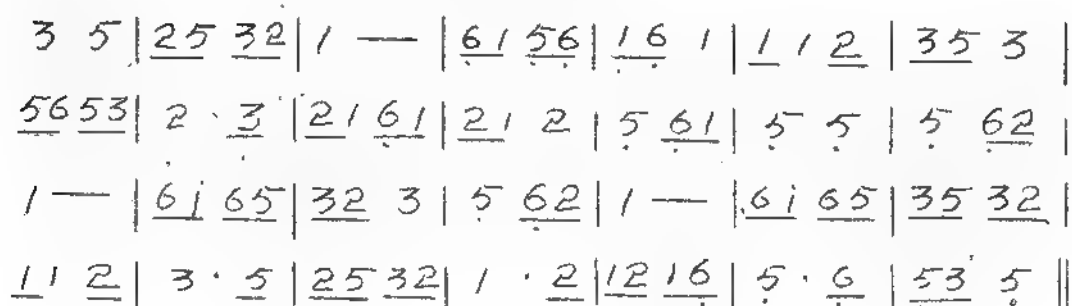 3 5 | 25 32 | 1 — | 61 56 | 16 1 | 1 1 2 | 35 3 |
56 53 | 2 · 3 | 21 61 | 21 2 | 5 61 | 5 5 | 5 62 |
1 — | 6i 65 | 32 3 | 5 62 | 1 — | 6i 65 | 35 32 |
1 1 2 | 3 · 5 | 25 32 | 1 · 2 | 12 16 | 5 · 6 | 53 5 ‖